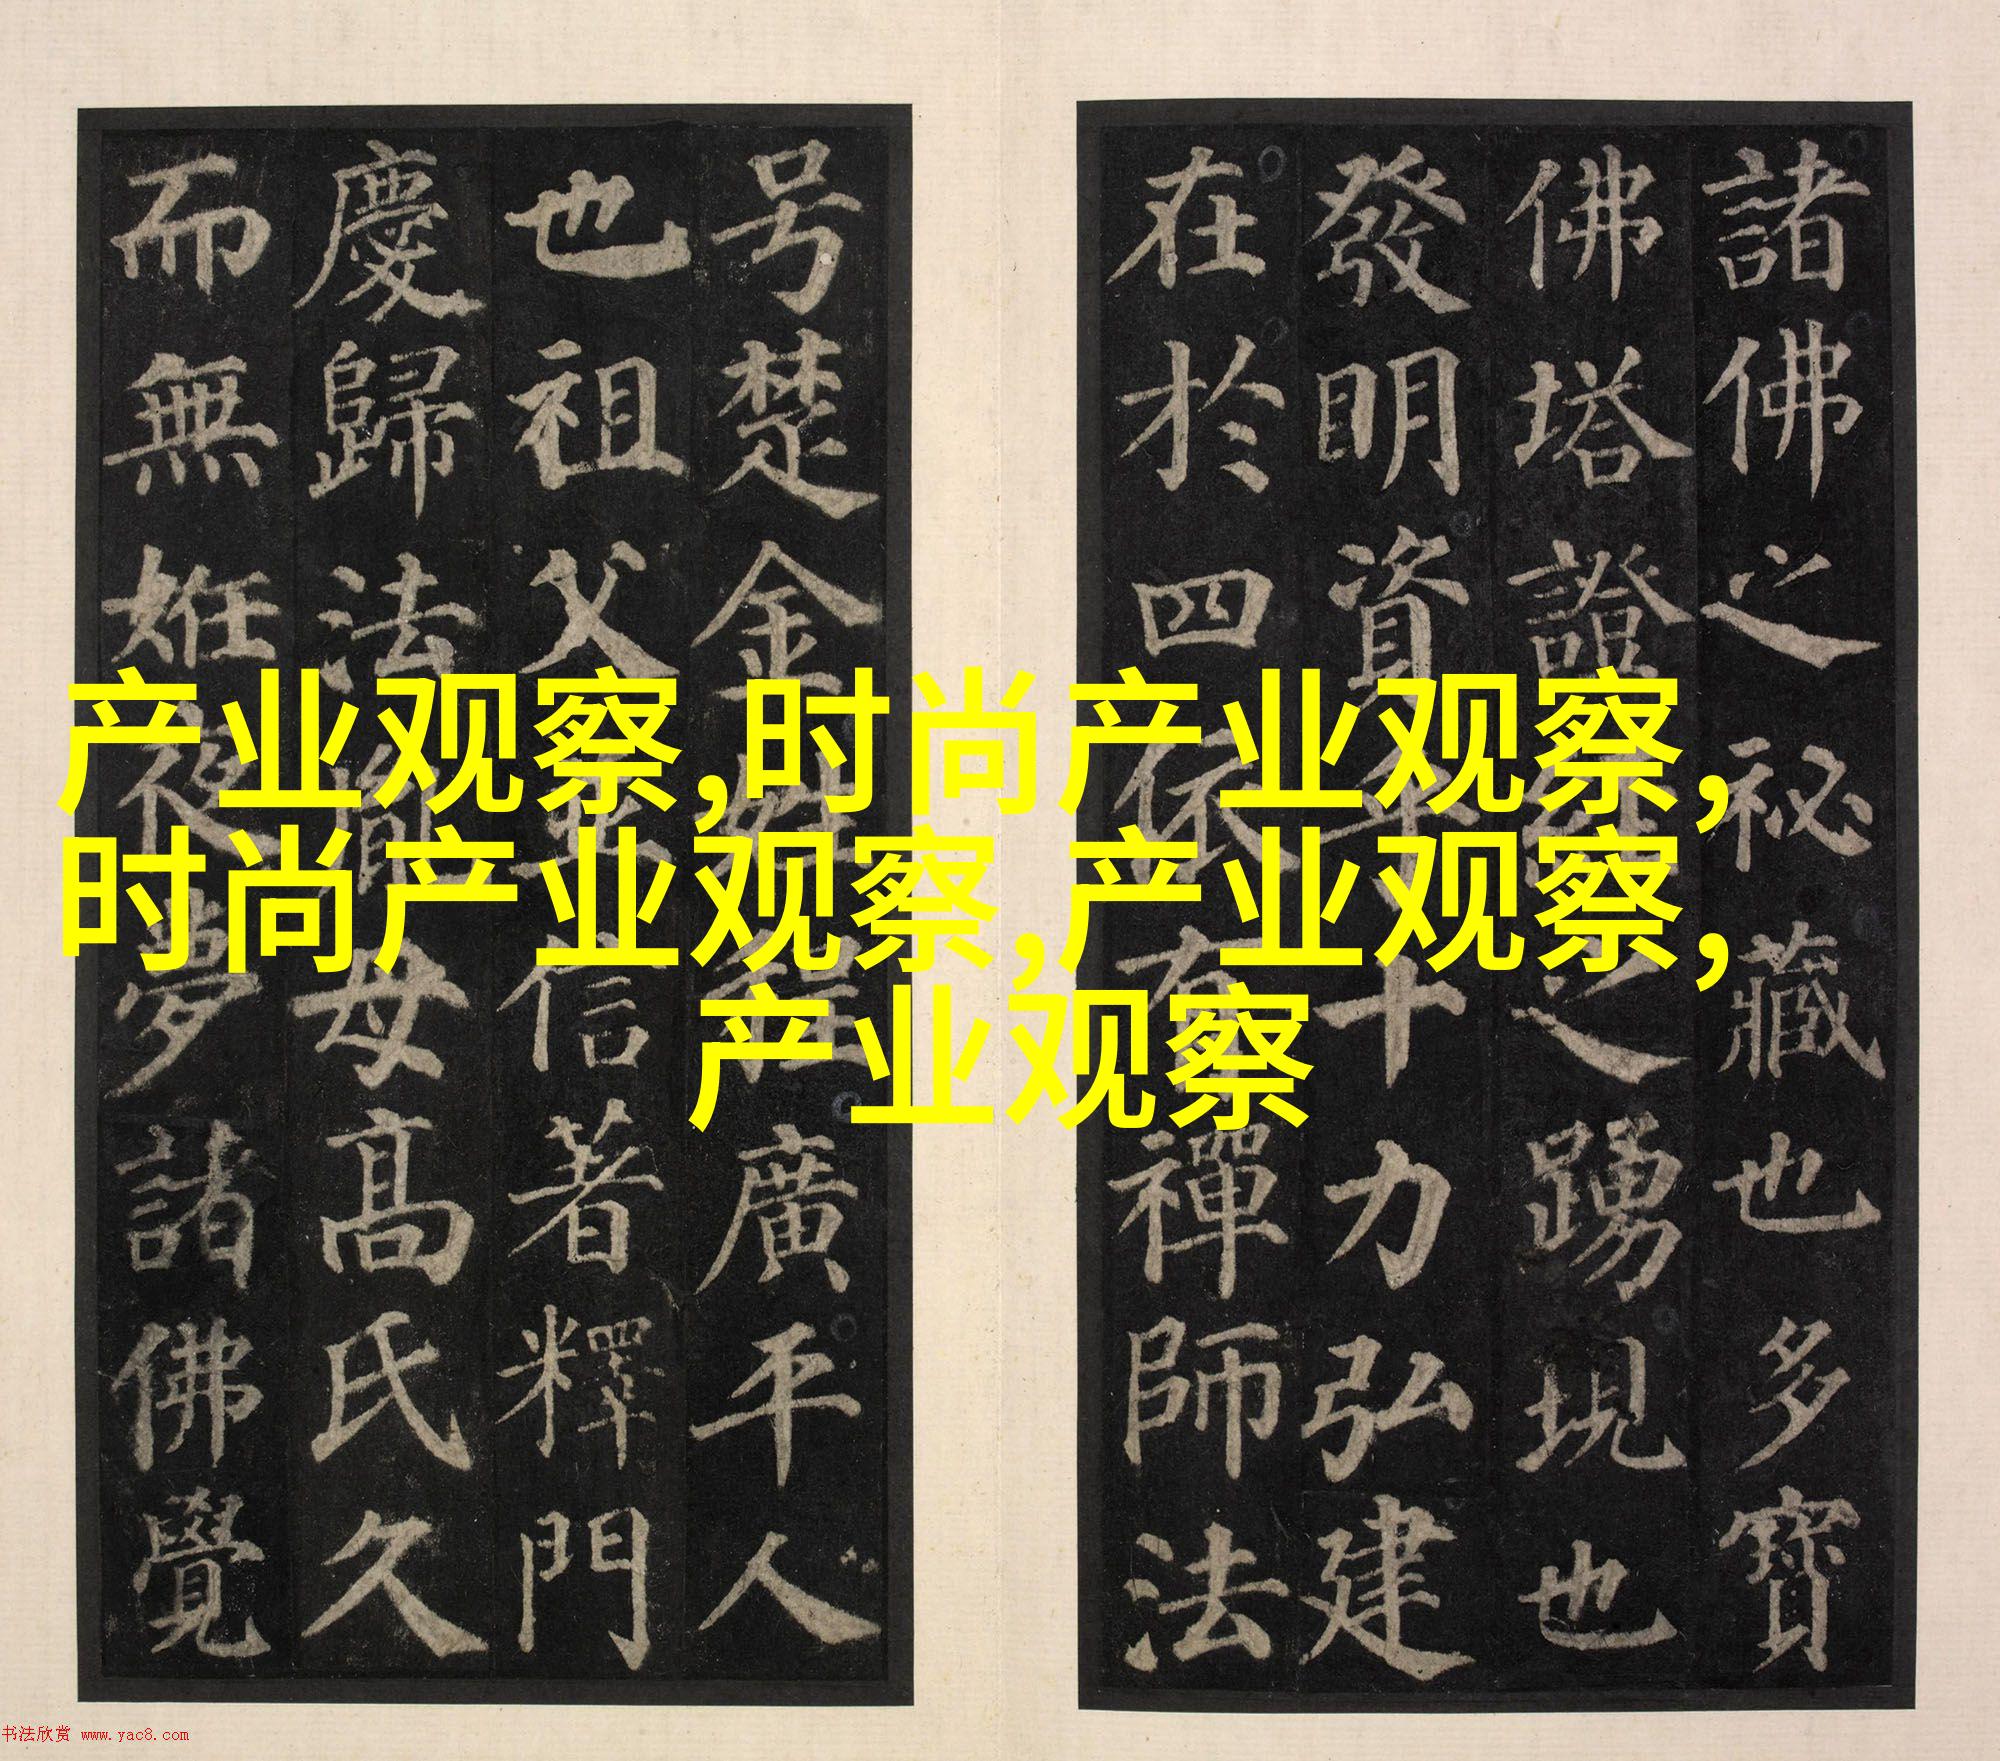 諸佛之祕藏也多寶
佛塔證經之踴現也
發明資乎十力弘建
在於四依有禪師法
号楚金姓程廣平人
也祖父並信著釋門
慶歸法胤母髙氏久
而無姙夜夢諸佛覺
产业观察,时尚产业观察,
时尚产业观察,产业观察,
产业观察
书法欣赏 www.yac8.com